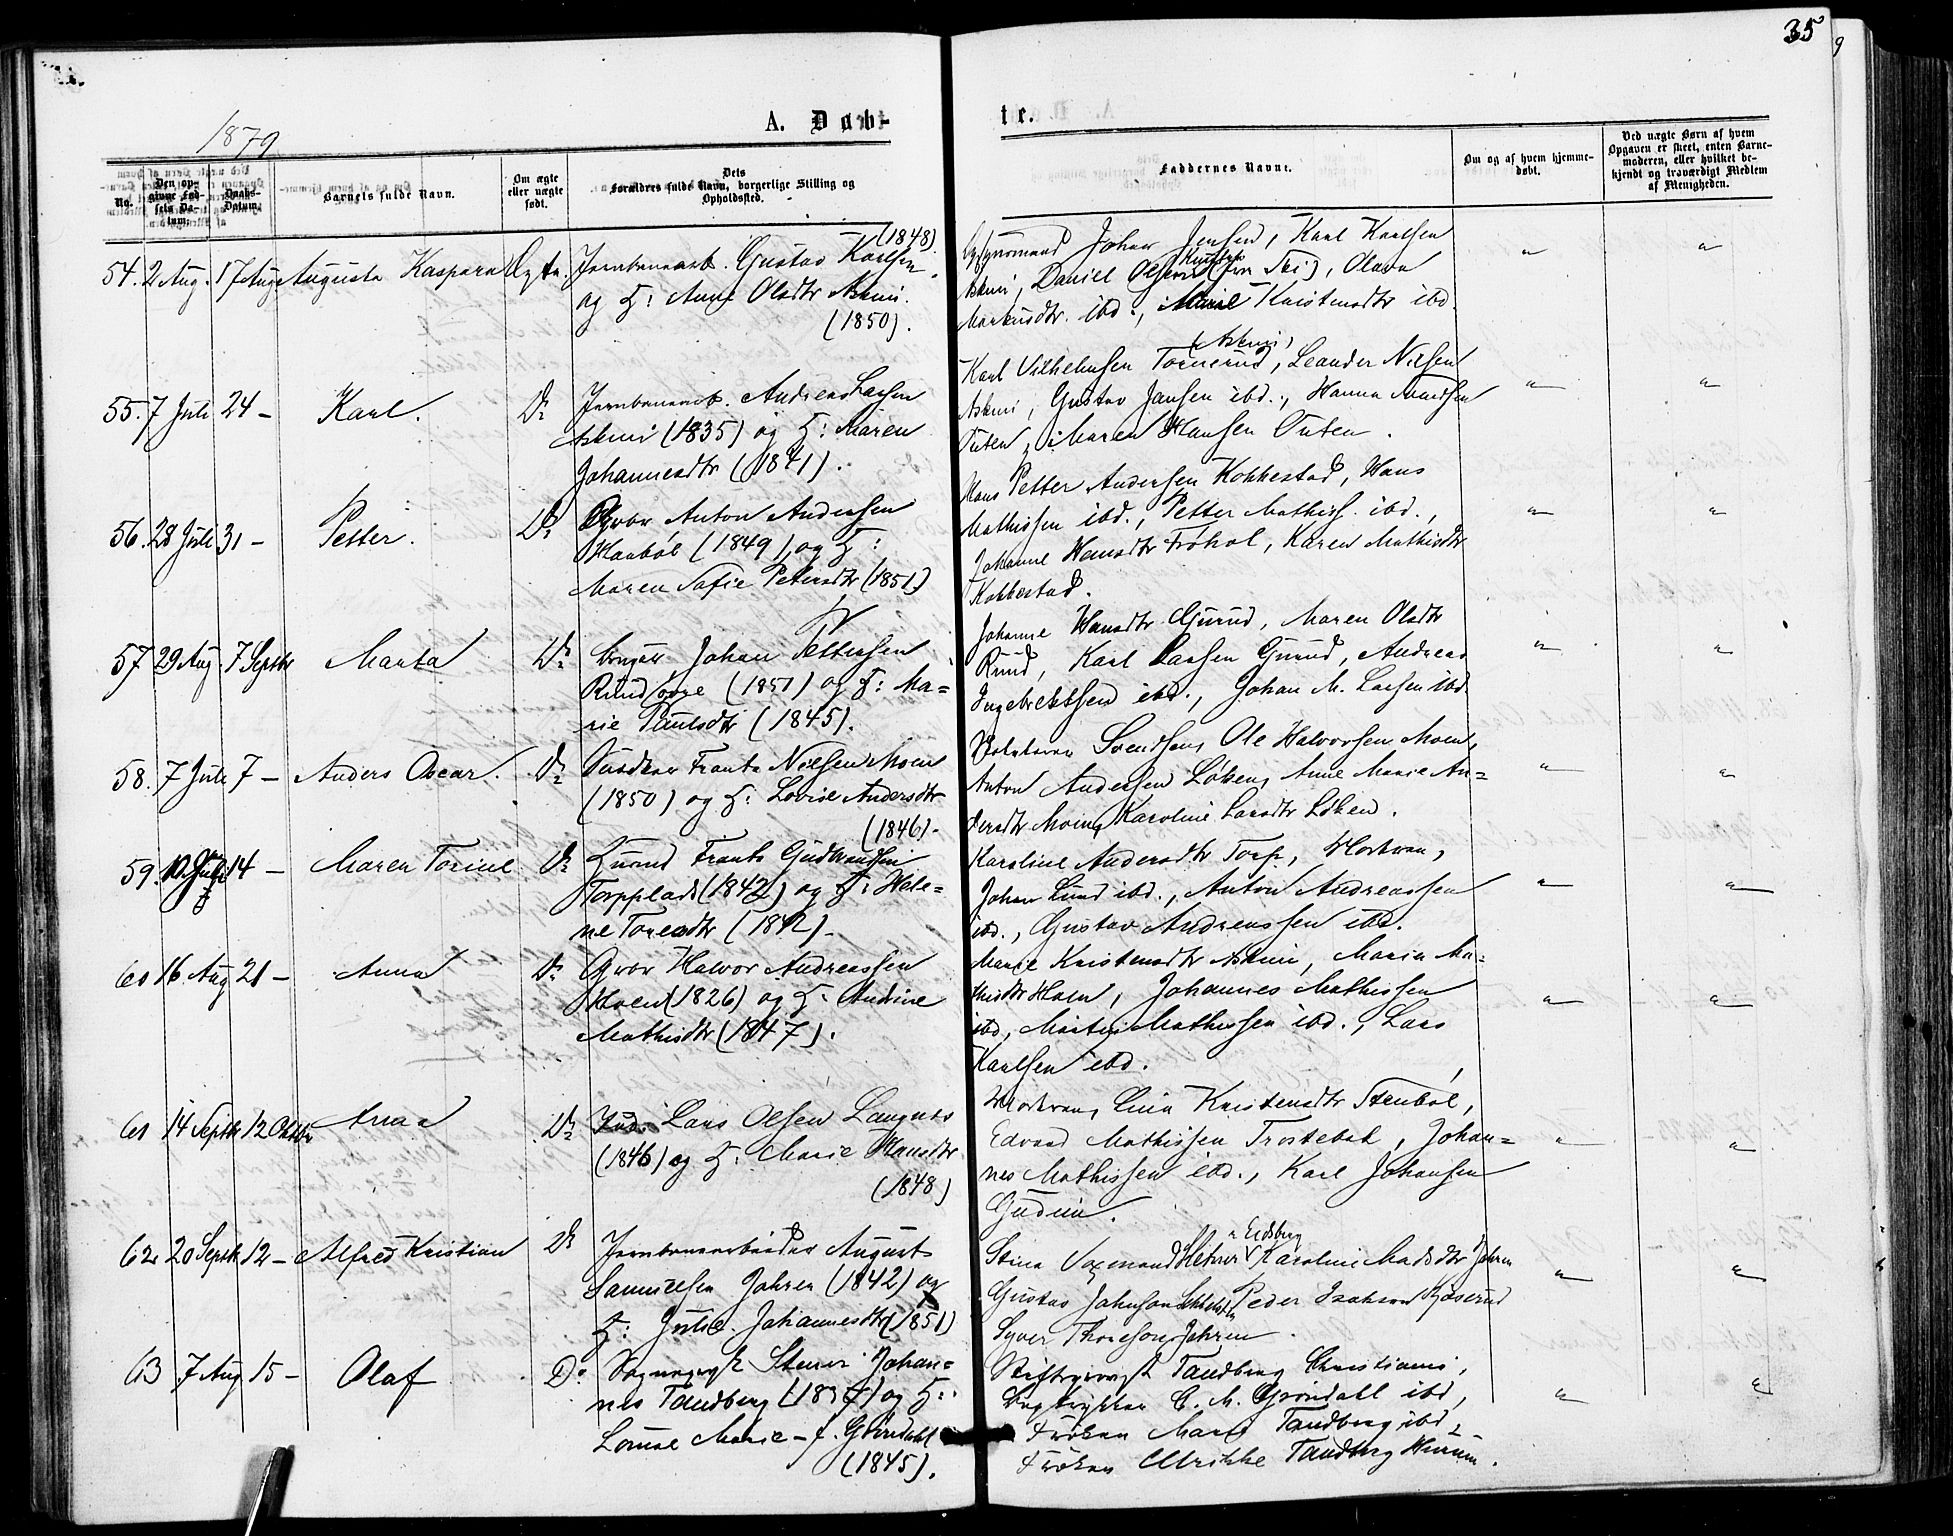 35
9
1879
A. Døb-
te.
No.
Den op-
givne Fød-
sels Da-
tum.
Daabs-
Datum.
Barnets fulde Navn.
Om ægte
eller uægte
født.
Dets
Forældres fulde Navn, borgerlige Stilling og
Opholdssted.
Faddernes Navne.
Om og af hvem hjemme-
døbt.
Ved uægte Børn af hvem
Opgaven er skeet, enten Barne-
moderen, eller hvilket be-
kjendt og troværdigt Medlem
af Menigheden.
54. 2 Aug. 17 Aug Augusta Kaspara Ægte. Jernbanearb. Gustav Karlsen (1848)
og H: Anne Olsdtr Askim.
(1850).
Johan Jensen, Karl Karlsen
Askim, Daniel Olsen (fra Ski), Olava
Markusdtr. ibd., Marie Kristensdtr ibd
55. 7 Juli 24 - Karl. Do Jernbanearb. Andreas Larsen
Askim (1835) og H: Maren
Johannesdtr (1841).
Karl Vilhelmsen Tornerud, (Askim) Leander Nilsen
Askim, Gustav Jansen ibd., Hanna Amundsen
Outen, Maren Hansen Outen.
56. 28 Juli 31 - Petter. Do Gbr Anton Andersen
Haabøl (1849) og H:
Maren Sofie Petersdtr (1851)
Hans Petter Andersen Kokkestad, Hans
Mathissen ibd., Petter Mathiss. ibd.,
Johanne Hansdtr Frøhol, Karen Mathisdtr
Kokkestad.
57 29 Aug. 7 Septbr Marta Do Johan Pettersen
Rudsøre (1851) og H: Ma=
rie Paulsdtr (1845).
Johanne Hansdtr Gjurud, Maren Olsdtr
Ruud, Karl Larsen Gjurud, Andreas
Ingebretsen ibd., Johan M. Larsen ibd.
58. 7 Juli 7 - Anders Oscar. Do Frants Nielsen Moen
(1850) og H: Lovise Andersdtr
(1846).
Svendsen, Ole Halvorsen Moen,
Anton Andersen Løken, Anne Marie An=
dersdtr Moen, Karoline Larsdtr Løken.
59. 10 Juli 14 - Maren Torine Do Frants Gudbrandsen
Torpplads (1842) og H: Hele=
ne Toresdtr (1842).
Karoline Andersdtr Torp, Morkvan,
Johan Lund ibd., Anton Andreassen
ibd., Gustav Andreassen ibd.
60 16 Aug 21 - Anna Do Gbr Halvor Andreassen
Hoen (1826) og H: Andrine
Mathisdtr (1847).
Marie Kristensdtr Askim, Maria Ma=
thisdtr Hoen, Johannes Mathissen
ibd, Martin Mathissen ibd., Lars
Karlsen ibd.
61 14 Septbr 12 Oktbr Anna Do Lars Olsen Langnes
(1846) og H: Marie Hansdtr
(1848)
Lina Kristensdtr Stenbøl,
Edvard Mathissen Trostebøl, Johan=
nes Mathissen ibd., Karl Johansen
Gudim.
62 20 Septbr 12 - Alfred Kristian Do Jernbanearbeider August
Samuelsen Jahren (1842) og
H: Julie Johannesdtr (1851)
Eidsberg
Stina Karoline Madsdtr Jahren
Gustav Johnson Peder Isaksen
Syver Thoresen Jahren.
63 7 Aug 15 - Olaf Do Sogneprest Stener Johan=
nes Tandberg og H:
Louise Marie f. Grøndahl
(1845).
Stiftsprovst Tandberg Christiania,
Bogtrykker C. M. Grøndahl ibd,
Frøken Marie Tandberg ibd,
Frøken Ulrikke Tandberg Hurum.